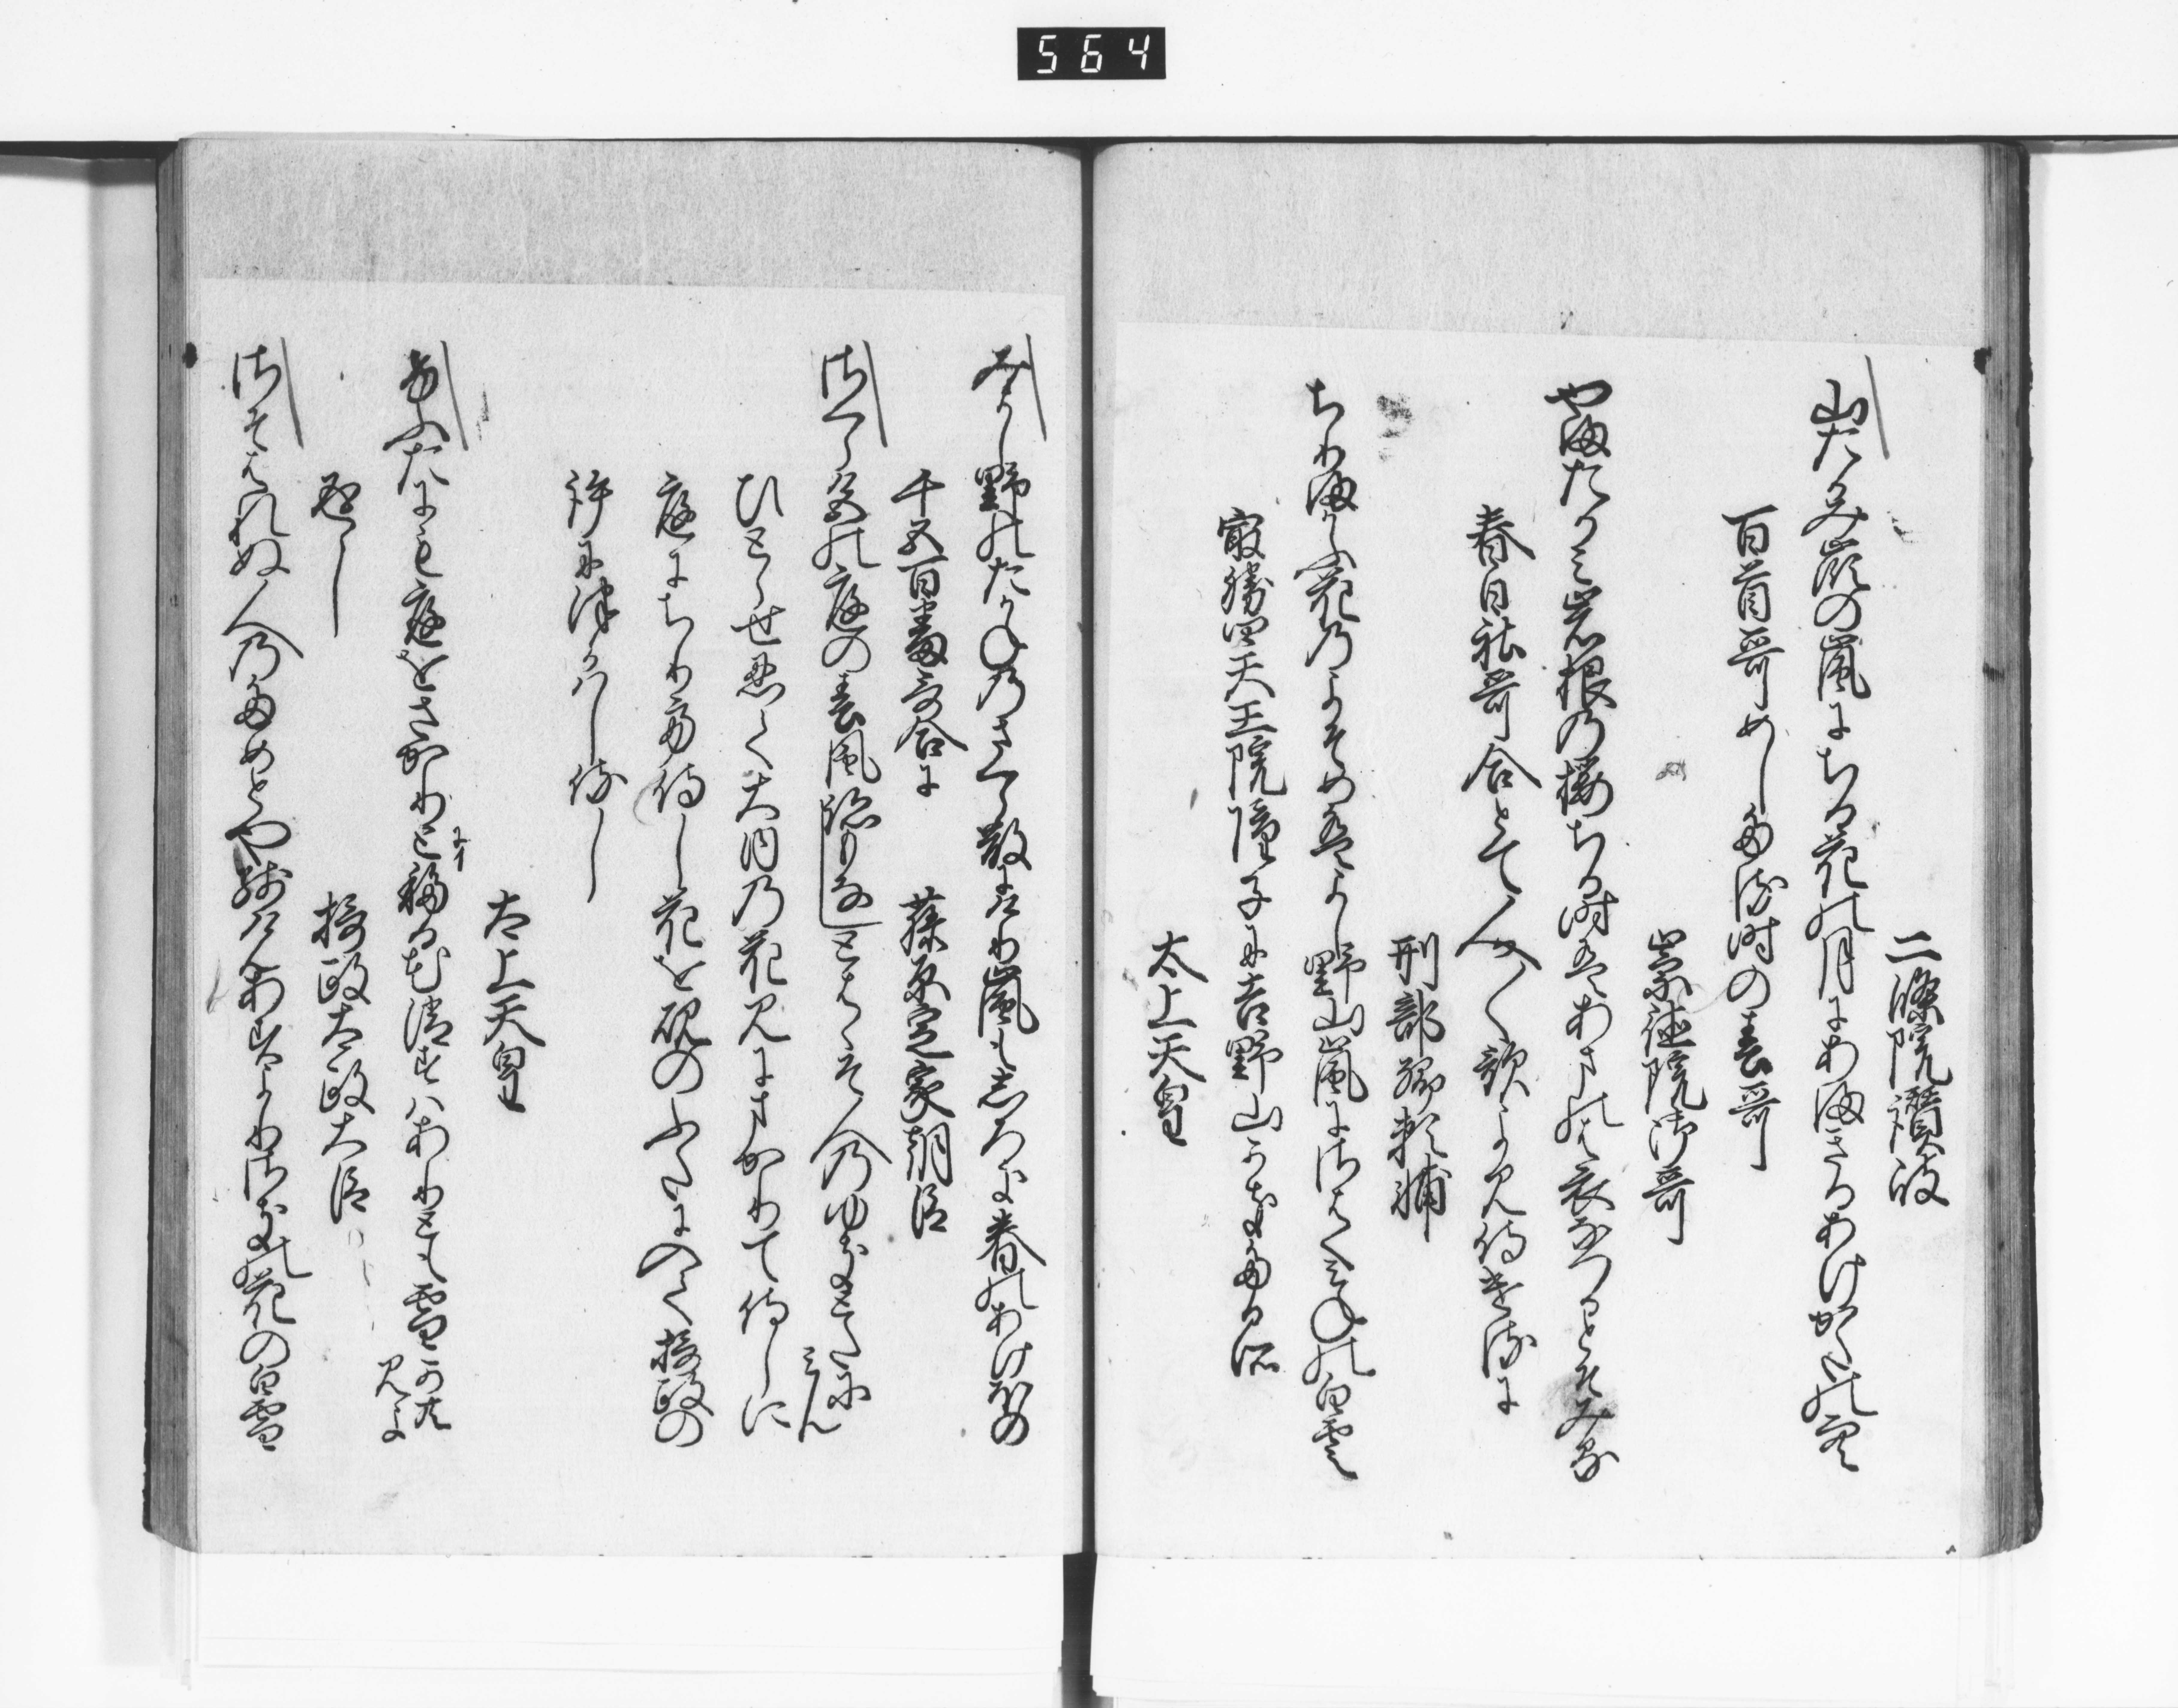 564
二條院讃岐
山たかみ嶺の嵐にちる花の月にあまきるあけかたの空
百首哥めしける時の春哥
崇徳院御哥
やまたかみ岩根の桜ちる時はあまの羽衣なつるとそみる
春日社哥合とて人々歌よみ侍けるに
刑部卿頼輔
ちりまかふ花のよそめはよし野山嵐にさはくみねの白雲
最勝四天王院障子に吉野山かきたる所
太上天皇
みよし野のたかねのさくら散にけり嵐もしろき春のあけほの
千五百番哥合に
藤原定家朝臣
さくら色の庭の春風跡もなしとはゝそ人のゆきとたに
みん
ひとゝせ忍て大内の花見にまかりて侍しに
庭にちりて侍し花を硯のふたに入て摂政の
許につかはし侍し
太上天皇
けふたにも庭をさかりとうつる花消すはありとも雪かと
にイ
見よ
返し
摂政太政大臣
さそはれぬ人のためとや残けんあすよりさきの花の白雪